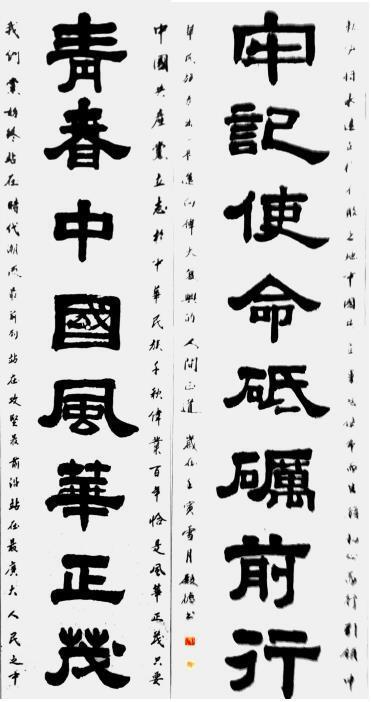 將永遠立於不敗之地中國共產黨使命而生踐初心為行引領中
牢記使命砥礪前行
華民族邁向偉大復興的人間正道 歲在壬寅雪月 書
中國共產黨立志於中華民族千秋偉業百年恰是風華正茂只要
青春中國風華正茂
我們黨始終站在時代潮流最前列站在攻堅最前沿站在最廣大人民之中